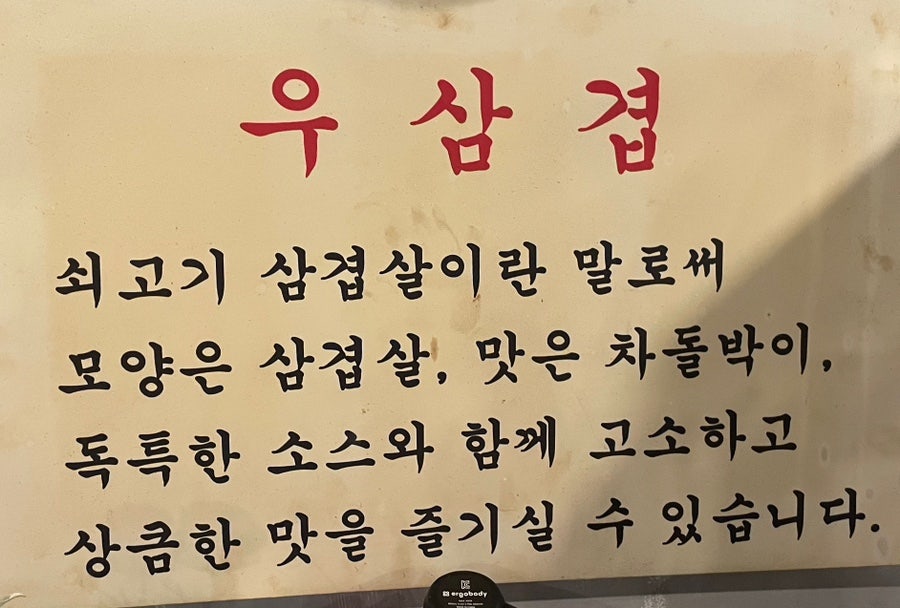 우삼겹
쇠고기 삼겹살이란 말로써
모양은 삼겹살, 맛은 차돌박이,
독특한 소스와 함께 고소하고
상큼한 맛을 즐기실 수 있습니다.
ergobody